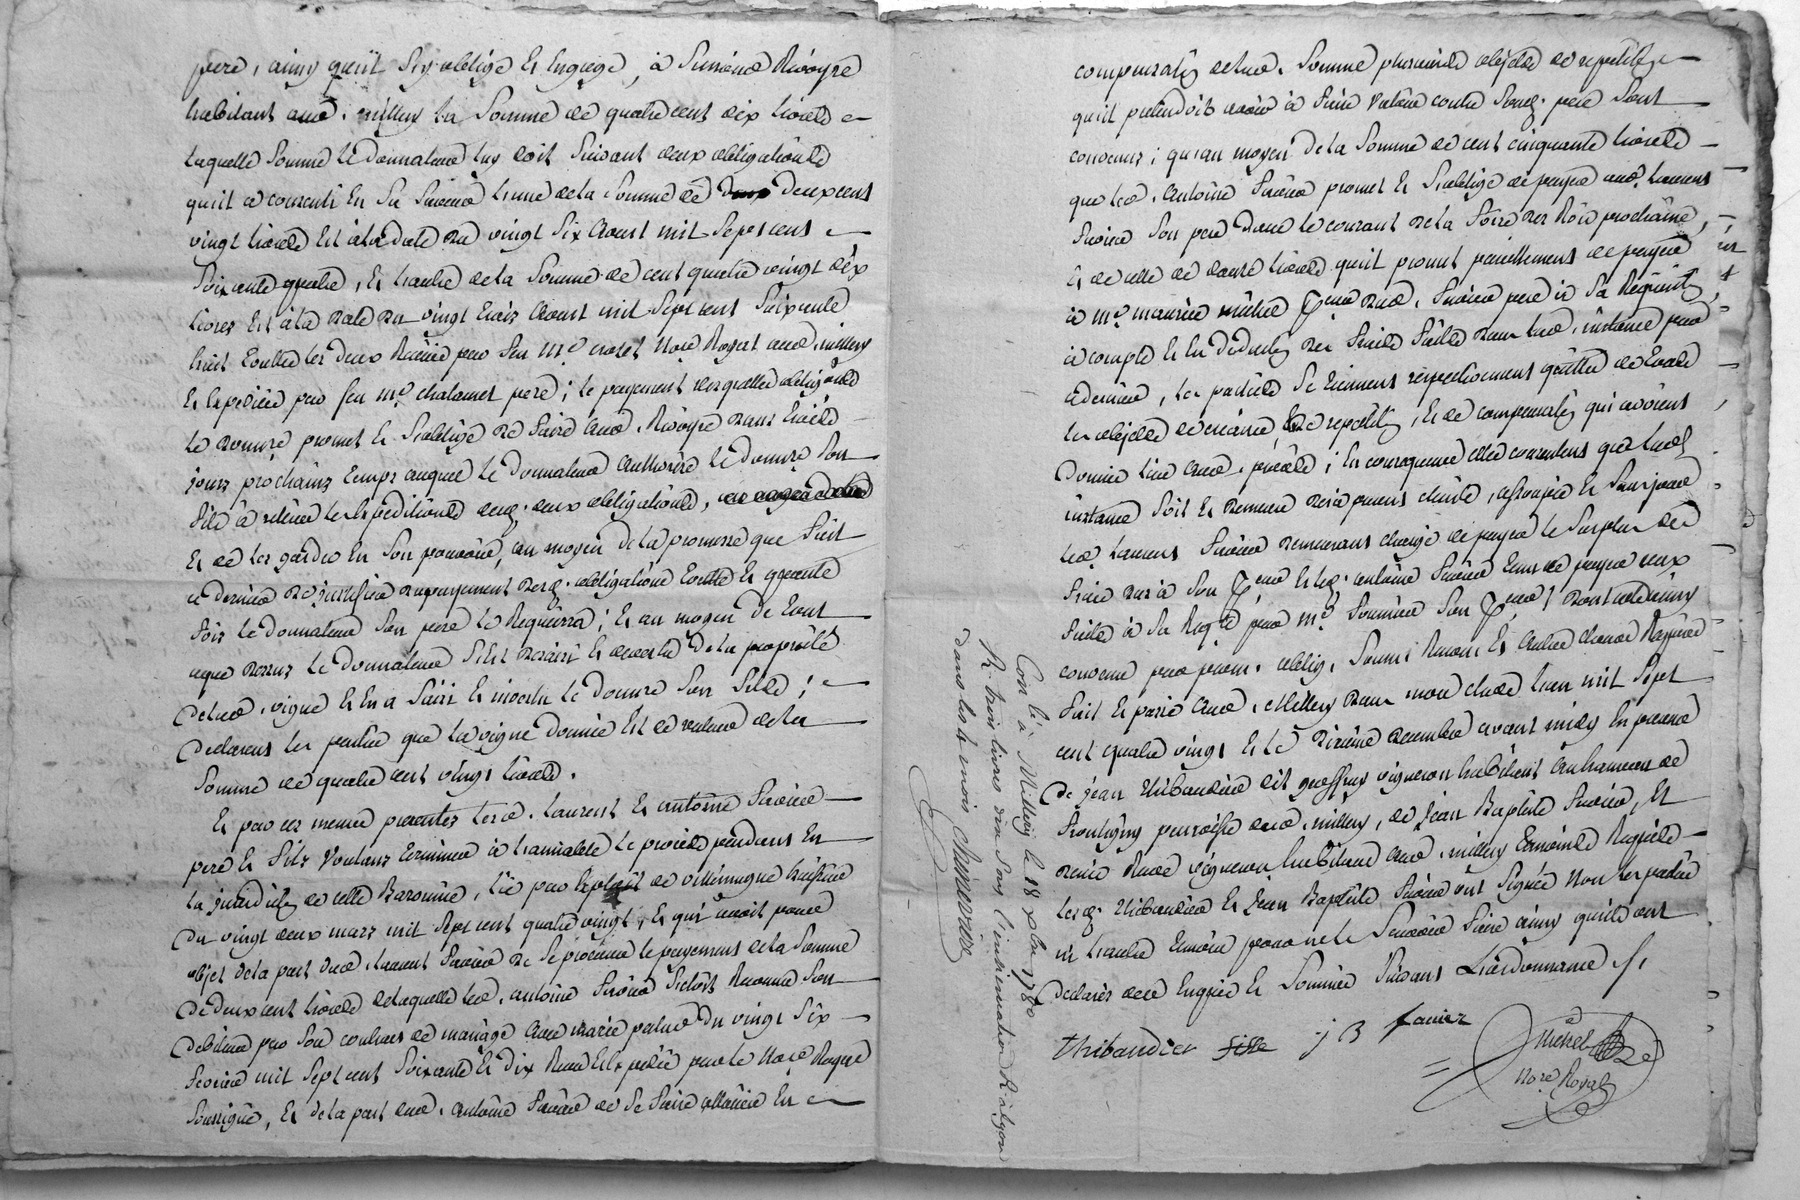 pere, ainsy qu'il s'y oblige et engage, à Rivoyre
habitant aud. millery la somme de quatre cent dix livres
laquelle somme le donnateur luy doit suivant deux obligations
qu'il a consenti en sa faveur l'une de la somme de deux cent
vingt livres est a la date du vingt six aoust mil sept cent
soixante quatre, et l'autre de la somme de cent quatre vingt dix
livres est à la date du vingt trois aoust mil sept cent soixante
huit toutes les deux Recües par feu me Nore Royal aud. millery
et expediées par feu me chalamet pere; le payement desquelles obligations
le donnaire promet et s'oblige de faire aud. Rivoyre dans trois
jours prochains temps auquel le donnateur authorise le donnaire son
fils à retirer les expeditions desd. deux obligations,
et de les garder en son pouvoir, au moyen de la promesse que fait
ce dernier de justifier du payement desd. obligations toutes et quantes
fois le donnateur son pere le Requerra; et au moyen de tout
ce que dessus le donnateur s'est desaisi et devestu de la propriété
de lad. vigne et en a saisi et investu le donnaire son fils;
declarent les parties que la vigne donnée est de valeur de la
somme de quatre cent vingt livres.
Et par ces meme presentes lesd. Laurent et antoine favier
pere et fils voulans terminer à l'amiable le procès pendant en
la jurisdion de cette Baronnie, lié par exploit de villemagne huissier
du vingt deux mars mil sept cent quatre vingt, et qui avoit pour
objet de la part dud. Laurent favier de se procurer le payement de la somme
de deux cent livres de laquelle led. antoine favier s'etoit Reconnu son
debiteur par son contrat de mariage avec marie du vingt six
fevrier mil sept cent soixante et dix Reçu et expedié par le Nore Royal
soussigné, et de la part dud. antoine favier de se faire allouer en
compensation de lad. somme plusieurs objets de repetition
qu'il pretendoit avoir à faire valoir contre sond. pere sont
convenus; qu'au moyen de la somme de cent cinquante livres
que led. antoine favier promet et s'oblige de payer aud. Laurent
favier son pere dans le courant de la foire des Rois prochaine,
et de celle de douze livres qu'il promet pareillement de payer
à me maurice michel dud. favier pere à sa Requisition,
à compte et en deduction des frais faits dans lad. instance par
ce dernier, les parties se tiennent respectivement quittes de tous
les objets de creance, de repetition, et de compensation qui avoient
donné lieu aud. procès; en consequence elles consentent que lad.
instance soit et demeure des à present eteinte, assoupie et
led. Laurent favier demeurant chargé de payer le surplus des
frais dus à son et led. antoine favier tenu de payer ceux
faits à sa Reqte par me son dont ainsy
convenu par prom. oblig. soum. Renon. et autres clauses Requises
fait et passé aud. Millery dans mon etude l'an mil sept
cent quatre vingt et le dixieme decembre avant midy en presence
de jean thibaudier dit vigneron habitant au hameau de
parroisse dud. millery, de jean Baptiste favier, et
vigneron habitant aud. millery temoins Requis
lesd. thibaudier et jean Baptiste favier ont signé Non les parties
ni l'autre temoin pour ne le sçavoir faire ainsy qu'ils ont
declarés de ce enquis et sommés suivant L'ordonnance
thibaudier j B favier
michel
Nore Royal
Con lé à Millery le 18 xbre 1780
R. trois livres dix sous l'insinuation R à lyon
dans les 4 mois